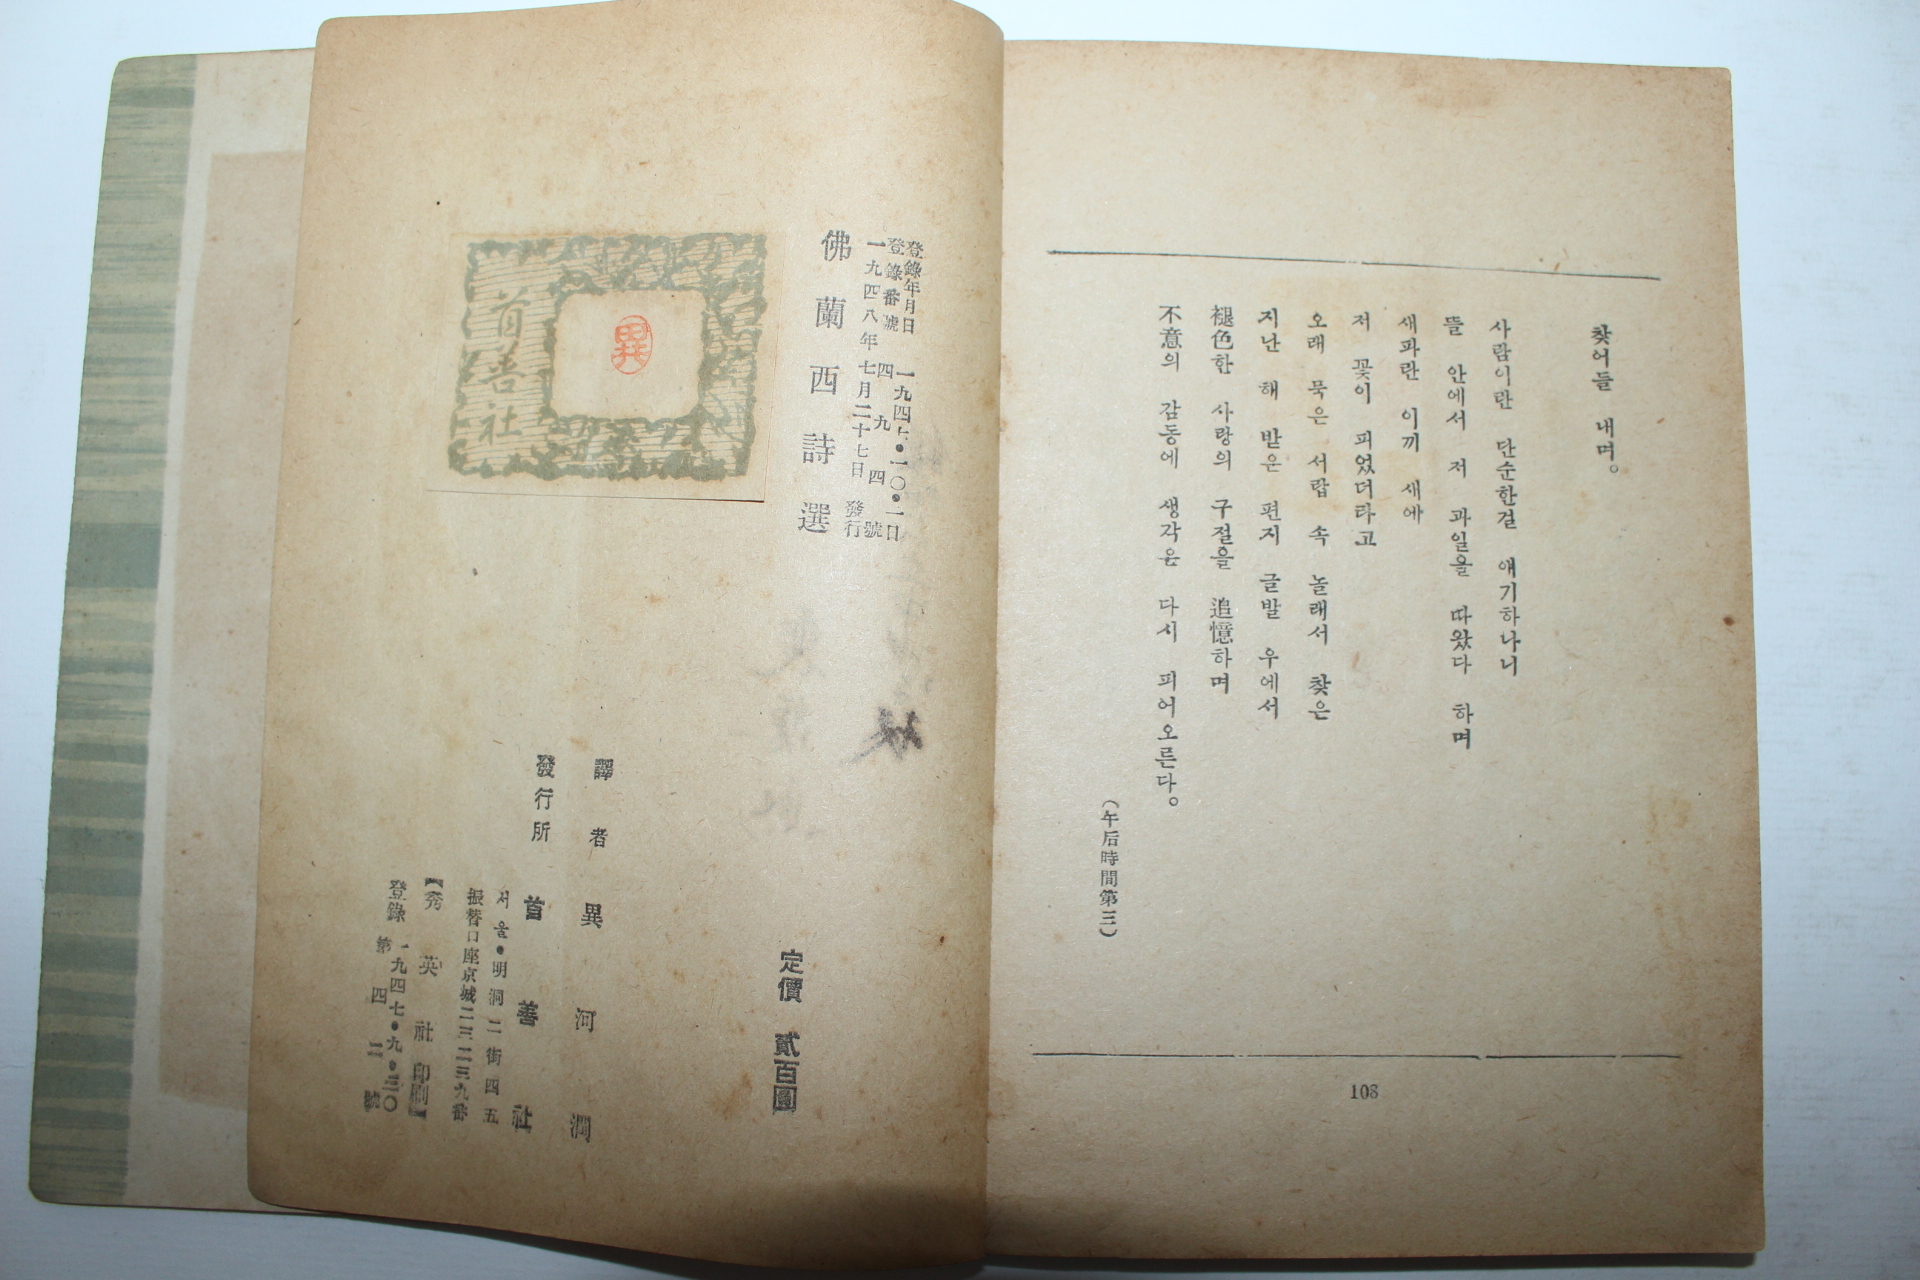 찾어들 내며。
사람이란 단순한걸 얘기하나니
뜰 안에서 저 과일을 따왔다 하며
새파란 이끼 새에
저 꽃이 피었더라고
오래 묵은 서랍 속 놀래서 찾은
지난 해 받은 편지 글발 우에서
褪色한 사랑의 구절을 追憶하며
不意의 감동에 생각은 다시 피어오른다。
(午后時間第三)
108
登錄年月日 一九四七・一〇・一日
登錄番號 四九四號
一九四八年七月二十七日 發行
佛蘭西詩選
首善社
異
定價 貳百圓
譯者 異河潤
發行所 首善社
서울・明洞二街四五
振替口座京城二三二三九番
【秀英社印刷】
登錄 一九四七・九・三〇
第四二號